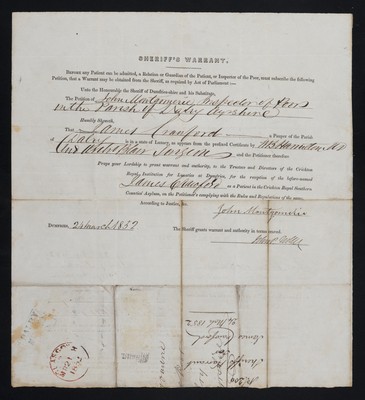 SHERIFF'S WARRANT.
BEFORE any Patient can be admitted, a Relation or Guardian of the Patient, or Inspector of the Poor, must subscribe the following
Petition, that a Warrant may be obtained from the Sheriff, as required by Act of Parliament:—
Unto the Honorable the Sheriff of Dumfries-shire and his Substitute,
The Petition of John Montgomerie Inspector of Poor
in the Parish of Dalry Ayrshire
Humbly Sheweth,
That James Crawford a Pauper of the Parish
of Dalry is in a state of Lunacy, as appears from the prefixed Certificate by
Surgeon and the Petitioner therefore
Prays your Lordship to grant warrant and authority, to the Trustees and Directors of the Crichton
Royal Institution for Lunatics at Dumfries, for the reception of the before-named
James Crawford as a Patient in the Crichton Royal Southern
Counties' Asylum, on the Petitioner's complying with the Rules and Regulations of the same.
According to Justice, &c.
John Montgomerie
DUMFRIES, 24 March 1852 The Sheriff grants warrant and authority in terms craved.
GLASGOW
1852
James Crawford
Sheriffs Warrant